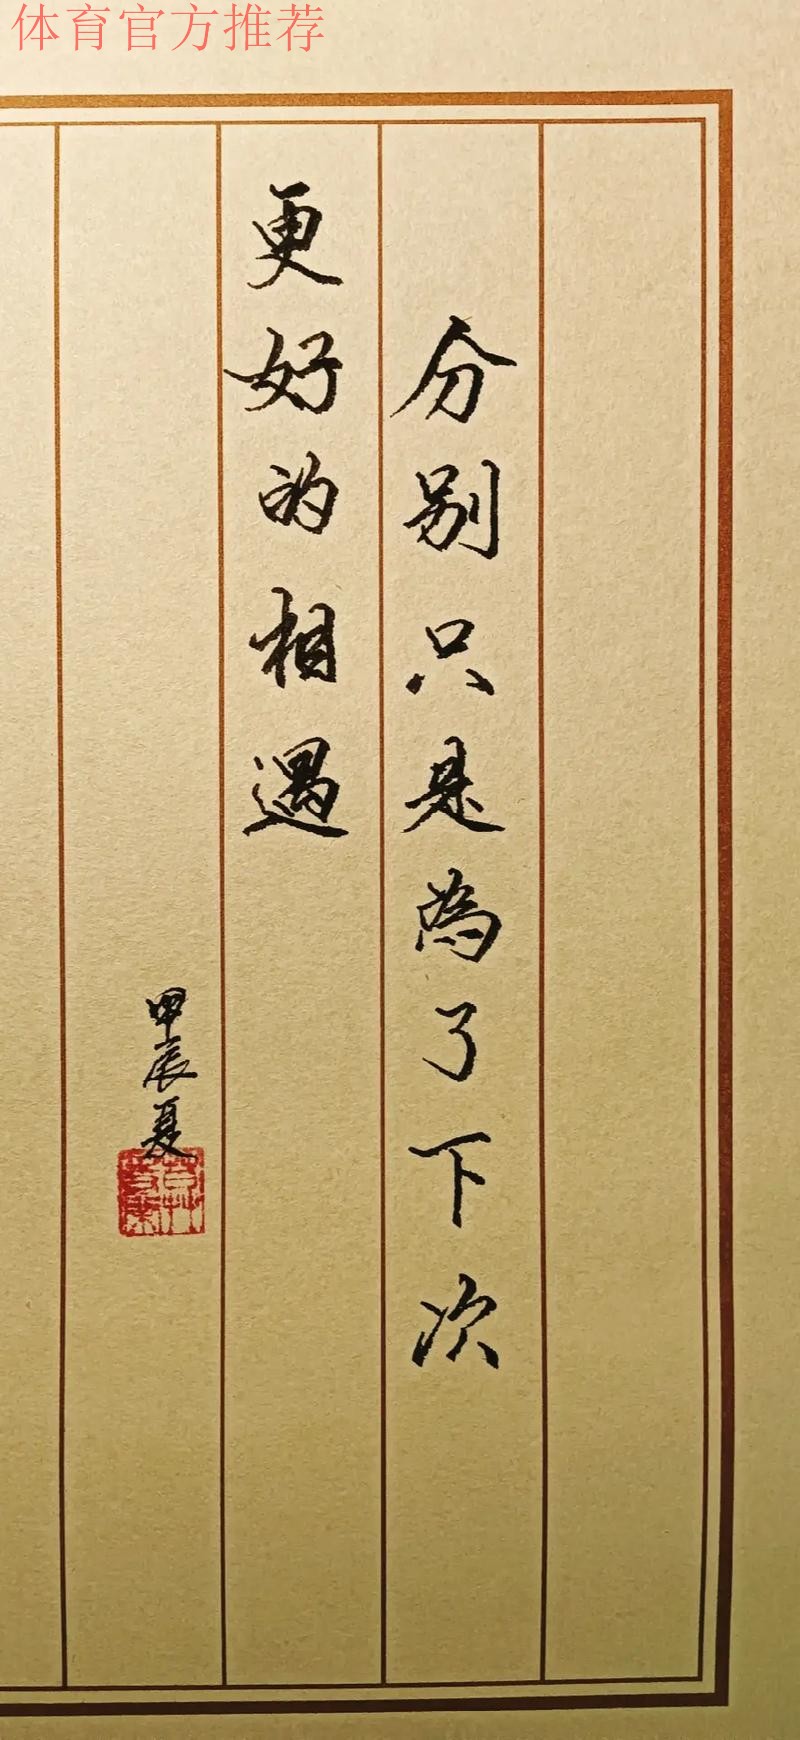 体育官方推荐
分别只是為了下次
更好的相遇
甲辰夏